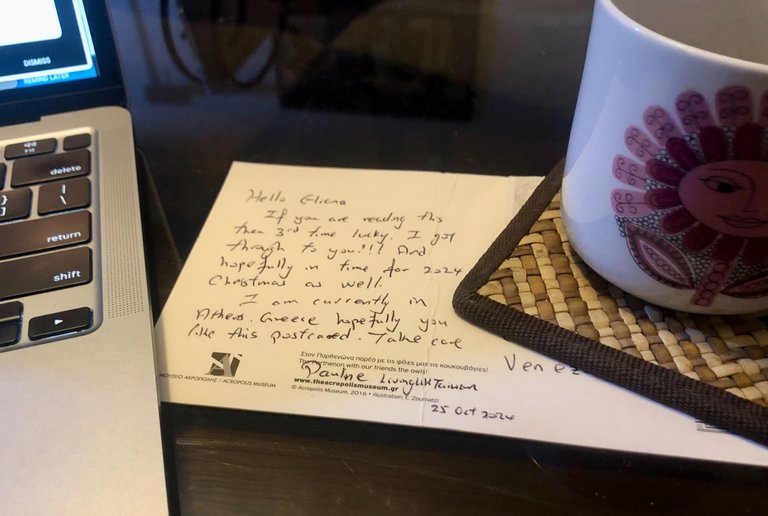 DISMISS
REMIND LATER
delete
}
]
|
\
return
shift
Hello Eliana
If you are reading this
then 3rd time lucky. I got
through to you!!! And
hopefully in time for 2024
Christmas as well.
I am currently in
Athens. Greece hopefully you
like this postcard. Take care
Στον Παρθενώνα παρέα με τις φίλες μας τις κουκουβάγιες!
The Parthenon with our friends the owls!
Pauline
www.theacropolismuseum.gr
© Acropolis Museum, 2016 • illustration: E. Zournatzi
ΜΟΥΣΕΙΟ ΑΚΡΟΠΟΛΗΣ / ACROPOLIS MUSEUM
25 Oct 2024
Venez